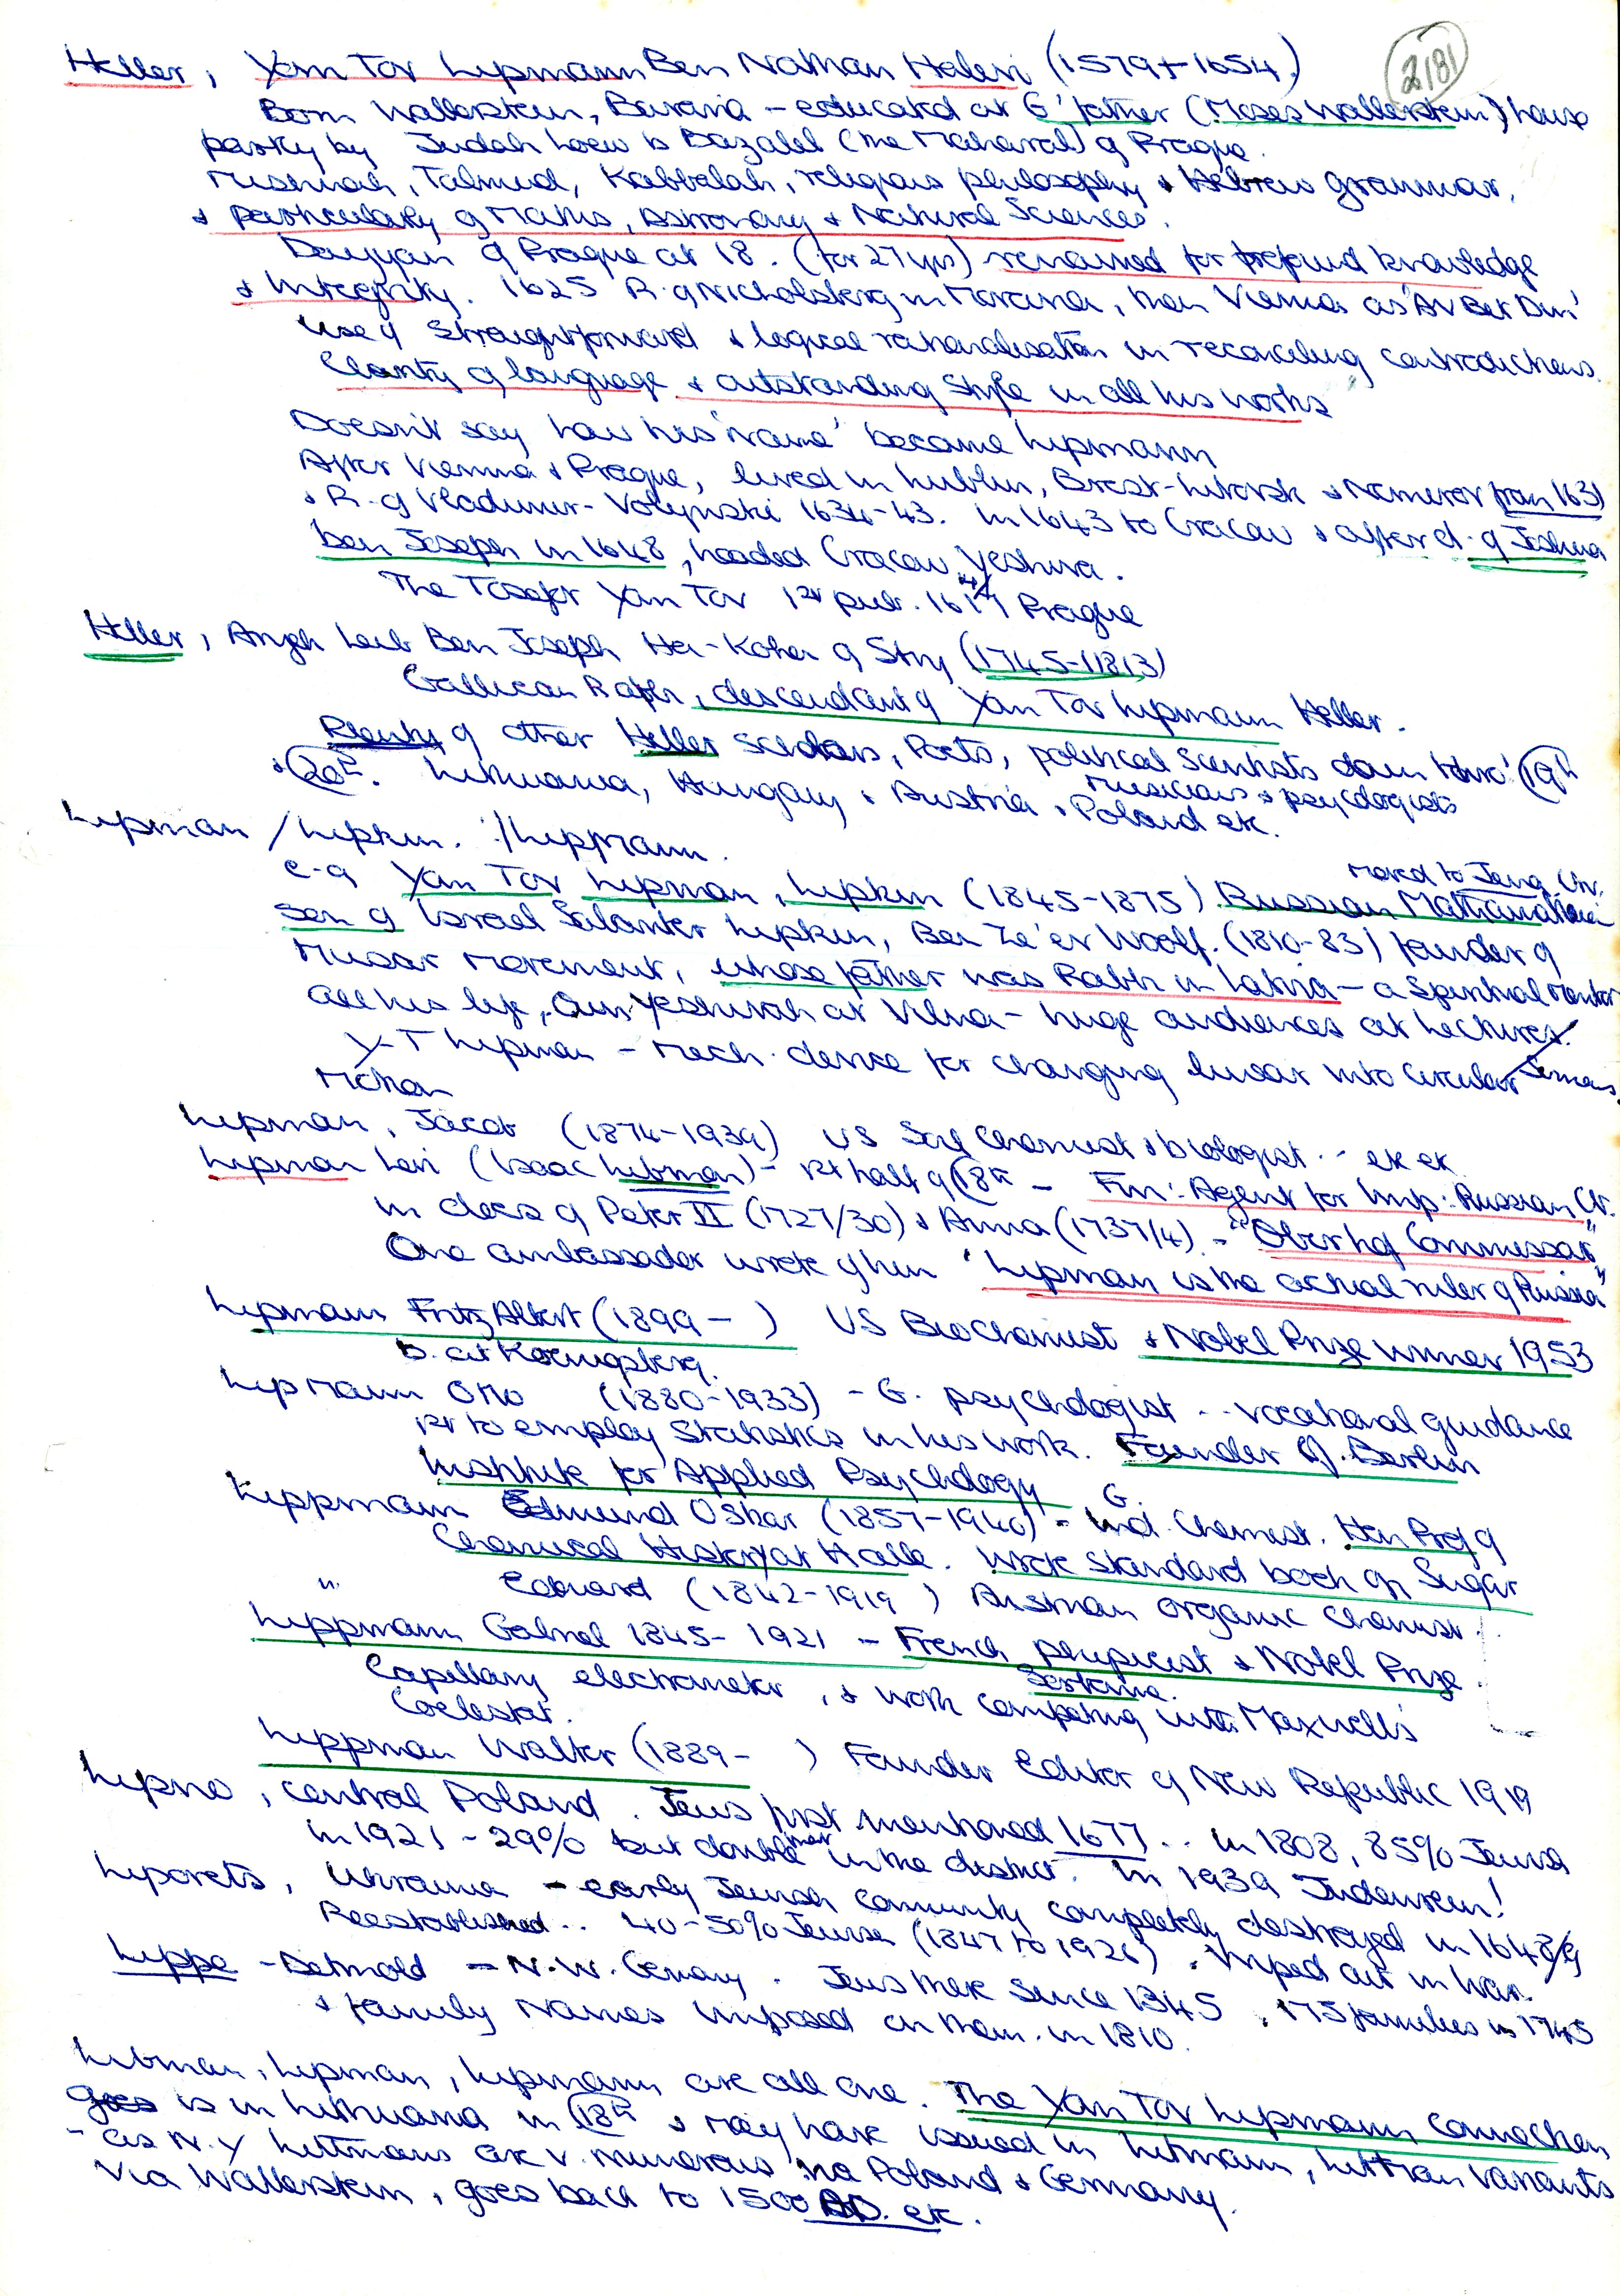 2181
Heller, Yom Tov Lipmann Ben Nathan Halevi (1579 + 1654.)
Born Wallerstein, Bavaria - educated at G'father (Moses Wallerstein)'s house
partly by Judah Loew b Bazalel (the Maharal) of Prague.
Mishnah, Talmud, Kabbalah, religious philosophy & Hebrew grammar,
& particularly of Maths, Astronomy & Natural Sciences.
Dayyan of Prague at 18. (for 27 yrs) renowned for profound knowledge
& integrity. 1625 R. of Nicholsberg in Moravia, then Vienna as 'Av Bet Din'
Use of straightforward & logical rationalisation in reconciling contradictions.
Clarity of language & outstanding style in all his works
Doesn't say how his 'name' became Lipmann
After Vienna & Prague, lived in Lublin, Brest-Litovsk & Nemirov from 1631
& R. of Vladimir-Volynski 1634-43. In 1643 to Cracow & after d. of Joshua
ben Joseph in 1648, headed Cracow Yeshiva.
The Tosefot Yom Tov 1st pub. 1614/17 Prague
Heller, Aryeh Leib Ben Joseph Ha-Kohen of Stry (1745-1813)
Galician Rabbi, descendant of Yom Tov Lipmann Heller.
Plenty of other Heller scholars, Poets, political scientists down thro' 19th
& 20th. Lithuania, Hungary & Austria & Poland etc. Musicians & psychologists
Lipman / Lipkin. / Lippmann.
e.g Yom Tov Lipman, Lipkin (1845-1875) Russian Mathematician moved to Jena Un.
son of Israel Salanter Lipkin, Ben Ze'ev Woolf. (1810-83) founder of
Musar Movement, whose father was Rabbi in Latvia - a spiritual mentor
all his life, Own Yeshivah at Vilna - huge audiences at lectures. Sermons.
Y-T Lipman - Mech. device for changing linear into circular
Motion
Lipman, Jacob (1874-1939) US Soil Chemist & biologist .. etc etc
Lipman Levi (Isaac Libman) - 1st half of 18th - Fin: Agent for Imp: Russian Ct.
in days of Peter II (1727/30) & Anna (1737/4) - "Oberhof Commissar"
One ambassador wrote of him 'Lipman is the actual ruler of Russia"
Lipmann Fritz Albert (1899 - ) US BioChemist & Nobel Prize winner 1953
b. at Koenigsberg.
Lipmann Otto (1880-1933) - G. psychologist .. vocational guidance
1st to employ statistics in his work. Founder of Berlin
Institute for Applied Psychology
Lippmann Edmund Oskar (1857-1940) - G. Ind. Chemist. Hon Prof of
Chemical History at Halle. Wrote standard book on Sugar
" Eduard (1842-1919) Austrian organic chemist.
Lippmann Gabriel 1845-1921 - French physicist & Nobel Prize
Capillary electrometer, & work competing with Maxwell's Sorbonne.
Coelestat.
Lippman Walter (1889 - ) Founder Editor of New Republic 1919
Lipno, central Poland. Jews first mentioned 1677.. in 1808, 85% Jewish
in 1921 - 29% but double that in the district. In 1939 Judenrein!
Lipovets, Ukraine - early Jewish community completely destroyed in 1648/9
Reestablished.. 40-50% Jewish (1847 to 1926). Wiped out in War.
Lippe - Detmold - N.W. Germany. Jews there since 1345, 175 families in 1745
& family names imposed on them in 1810.
Libman, Lipman, Lipmann are all one. The Yom Tov Lipmann Connection,
goes is in Lithuania in 18th & may have issued in Litmann, Littman variants
- as N.Y Littmans are v. numerous via Poland & Germany.
Via Wallerstein, goes back to 1500 AD. etc.